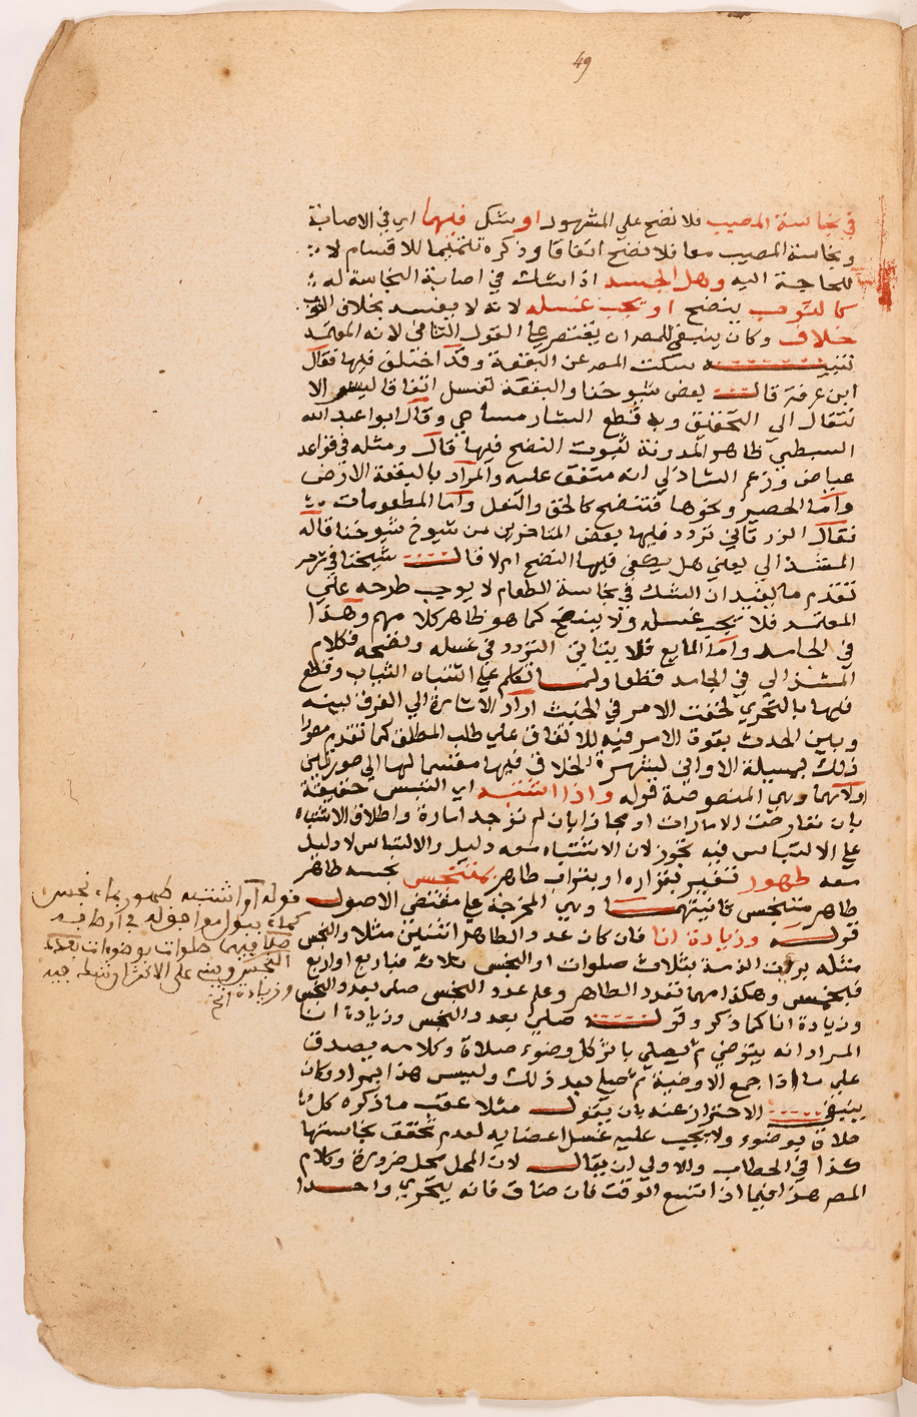 49
في نجاسة المصيب فلا نضح علي المشهور او شك فيهما اي في الاصابة
ونجاسة المصيب معا فلا نضح اتفاقا وذكره تتميما للاقسام لا
للحاجة اليه وهل الجسد اذا شك في اصابة النجاسة له
كالثوب ينضح او يجب غسله لانه لا يفسد بخلاف الثوب
خلاف وكان ينبغي للمصران يقتصر علي القول الثاني لانه المعتمد
تنبيه سكت المصر عن البقعة وقد اختلف فيها فقال
ابن عرفة قال بعض شيوخنا والبقعة تغسل اتفاقا ليسر الا
نتقال الي المحقق وبه قطع الشارمساحي وقال ابوا عبد الله
السبطي ظاهر المدونة ثبوت النضح فيها قال ومثله في قواعد
عياض وزعم الشاذلي انه متفق عليه والمراد بالبقعة الارض
واما الحصير ونحوها فتنضح كالخف والنعل واما المطعومات
فقال الزرقاني تردد فيها بعض المتاخرين من شيوخ شيوخنا قاله
المشذالي يعني هل يكفي فيها النضح ام لا قال شيخنا في شرحر
تقدم ما يفيد ان الشك في نجاسة الطعام لا يوجب طرحه علي
المعتمد فلا يجب غسله ولا ينضح كما هو ظاهر كلامهم وهذا
في الجامد واما المايع فلا يتاتي التردد في غسله ونضحه فكلام
المشذالي في الجامد فقط ولما تكلم علي اشتباه الثياب وقطع
فيها بالتحري لخفت الامر في الخبث اراد الاشارة الي الفرق بينه
وبين الحدث بقوة الامر فيه للاتفاق علي طلب المطلق كما تقدم مصورا
ذلك بمسيلة الاواني لشهرة الخلاف فيها مقسما لها الي صورتين
اولاهما وهي المنصوصة قوله واذا اشتبه اي التبس حقيقة
بان تعارضت الامارات او مجازا بان لم توجد امارة واطلاق الاشتباه
علي الالتباس فيه تجوز لان الاشتباه معه دليل والالتباس لا دليل
معه طهور تغير بقراره او بتراب طاهر بمتنجس نجسه طاهر
طاهر متنجس ثانيتهما وهي المخرجة علي مقتضي الاصول
قوله وزيادة انا فان كان عدد الطاهر اثنين مثلا والنجس
مثله بريت الذمة بثلاث صلوات او النجس ثلاثة فباربع او اربع
فبخمس وهكذا مهما تعدد الطاهر وعلم عدد النجس صلي بعدد النجس
وزيادة انا كما ذكر وقوله صلي بعدد النجس وزيادة انا
المراد انه يتوضي ثم يصلي باثر كل وضوء صلاة وكلامه يصدق
علي ما اذا جمع الاوضية ثم صلي بعد ذلك وليس هذا بمراد وكان
ينبغي الاحتراز عنه بان يقول مثلا عقب ما ذكره كل
صلاة بوضوء ولا يجب عليه غسل اعضايه لعدم تحقق نجاستها
كذا في الحطاب والاولي ان يقال لان المحل محل ضرورة وكلام
المصر هذا فيما اذا اتسع الوقت فان ضاق فانه يتحري واحدا
قوله او اشتبه طهور بماء نجس
صلا فيهما صلوات بوضوءات بعدد
النجس
وزيادة انا